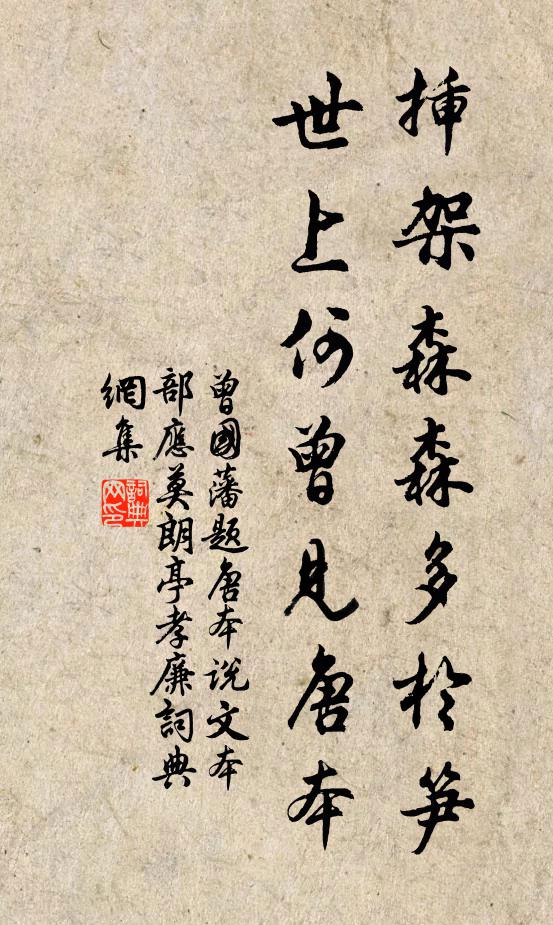 插架森森多於笋
世上何曾見唐本
曾國藩題唐本说文本
部應莫朗亭孝廉詞典
網集
詞典网印